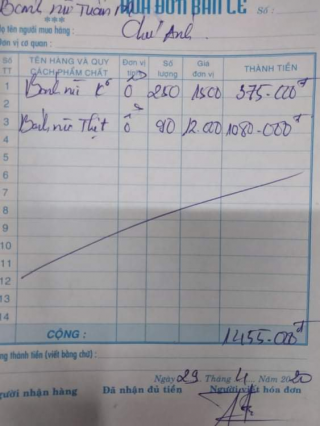 Bánh mì Tuấn HÓA ĐƠN BÁN LẺ Số :
***
Họ tên người mua hàng : Chú Anh
Đơn vị cơ quan :
Số TT TÊN HÀNG VÀ QUY CÁCH PHẨM CHẤT Đơn vị tính Số lượng Giá đơn vị THÀNH TIỀN
1 Bánh mì K ổ 250 1500 375.000đ
2
3 Bánh mì Thịt ổ 90 12000 1080.000đ
4
5
6
7
8
9
10
11
12
13
14
CỘNG : 1455.000đ
Cộng thành tiền (viết bằng chữ) :
Ngày 29 Tháng 4 Năm 2020
Người nhận hàng Đã nhận đủ tiền Người viết hóa đơn